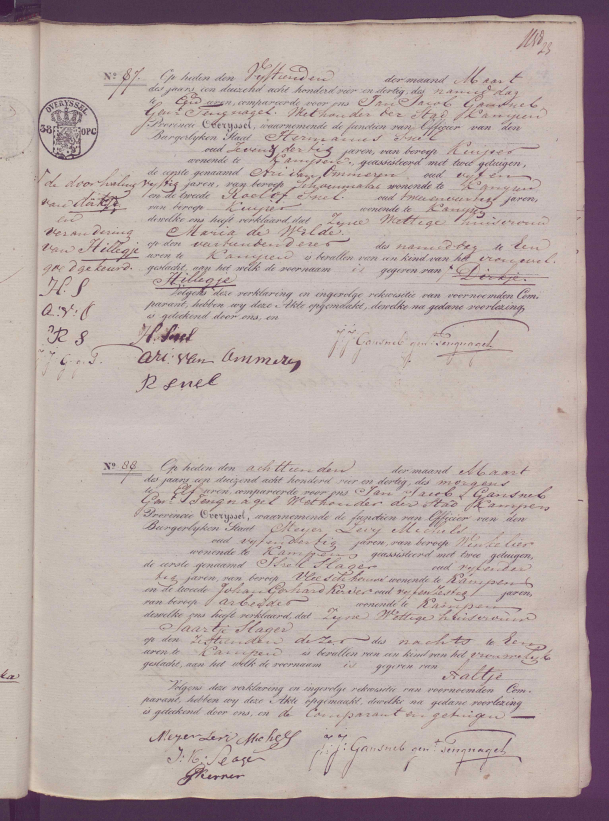 23
Nº 87. Op heden den Vijftienden der maand Maart
des jaars een duizend acht honderd vier en dertig, des namiddag
te Een uren, compareerde voor ons Jan Jacob Gansneb
Gen. Tengnagel Wethouder der Stad Kampen
Provincie Overyssel, waarnemende de functien van Officier van den
Burgerlyken Staat Hermanus Snel
oud Zeven dertig jaren, van beroep Kuiper
wonende te Kampen, geassisteerd met twee getuigen,
de eerste genaamd Ari van Ommeren oud vyf en
vyftig jaren, van beroep Schoenmaker wonende te Kampen
en de tweede Roelof Snel oud jaren,
van beroep Kuiper wonende te Kampen
dewelke ons heeft verklaard, dat Zyne Wettige huisvrouw
Maria de Welde
op den veertienden dezer des namiddag te Een
uren te Kampen is bevallen van een kind van het vrouwel.
geslacht, aan het welk de voornaam is gegeven van Dirtje
Hillegje
Volgens deze verklaring en ingevolge rekwisitie van voornoemden Com-
parant, hebben wy deze Akte opgemaakt, dewelke na gedane voorlezing
is geteekend door ons, en
H Snel
Ari van Ommeren
R Snel
J J Gansneb gent Tengnagel
OVERYSSEL
38 OPC
de doorhaling
van
en
verandering
van Hillegje
goedgekeurd.
H. S
A. v. O
R S
J J G. g. T.
Nº 88 Op heden den achttienden der maand Maart
des jaars een duizend acht honderd vier en dertig, des morgens
te Elf uren compareerde voor ons Jan Jacob Gansneb
Gen. Tengnagel Wethouder der Stad Kampen
Provincie Overyssel, waarnemende de functien van Officier van den
Burgerlyken Staat Meyer Levy Michels
oud vyf en dertig jaren, van beroep Winkelier
wonende te Kampen geassisteerd met twee getuigen,
de eerste genaamd Slager oud vyf en der
tig jaren, van beroep Vleeschhouwer wonende te Kampen
en de tweede Johan Gerhard Kerner oud vyf en zestig jaren,
van beroep arbeider wonende te Kampen
dewelke ons heeft verklaard, dat Zyne Wettige huisvrouw
Saartje Slager
op den zestienden dezer des nachts te Een
uren te Kampen is bevallen van een kind van het vrouwelyk
geslacht, aan het welk de voornaam is gegeven van
Aaltje
Volgens deze verklaring en ingevolge rekwisitie van voornoemden Com-
parant, hebben wy deze Akte opgemaakt, dewelke na gedane voorlezing
is geteekend door ons, en de Comparant en getuigen
Meyer Levi Michels
Kerner
J. J. Gansneb gent Tengnagel